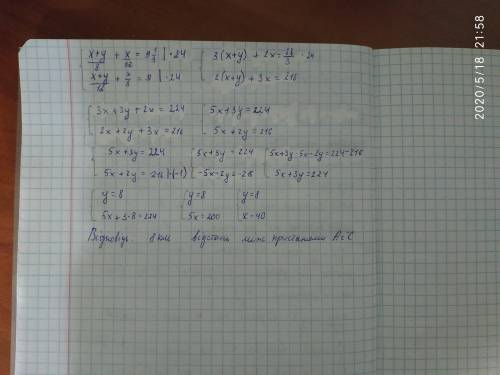 { (x+y)/8 + x/12 = 9 1/3 | ·24 { 3(x+y) + 2x = 28/3 · 24
{ (x+y)/12 + x/8 = 9 | ·24 { 2(x+y) + 3x = 216
{ 3x+3y+2x = 224 { 5x+3y = 224
{ 2x+2y+3x = 216 { 5x+2y = 216
{ 5x+3y = 224 { 5x+3y = 224 { 5x+3y-5x-2y = 224-216
{ 5x+2y = 216 |·(-1) { -5x-2y = -216 { 5x+3y = 224
{ y=8 { y=8 { y=8
{ 5x+3·8=224 { 5x=200 { x=40
Відповідь 8 км відстань між пристанями А і С
2020/5/18 21:58